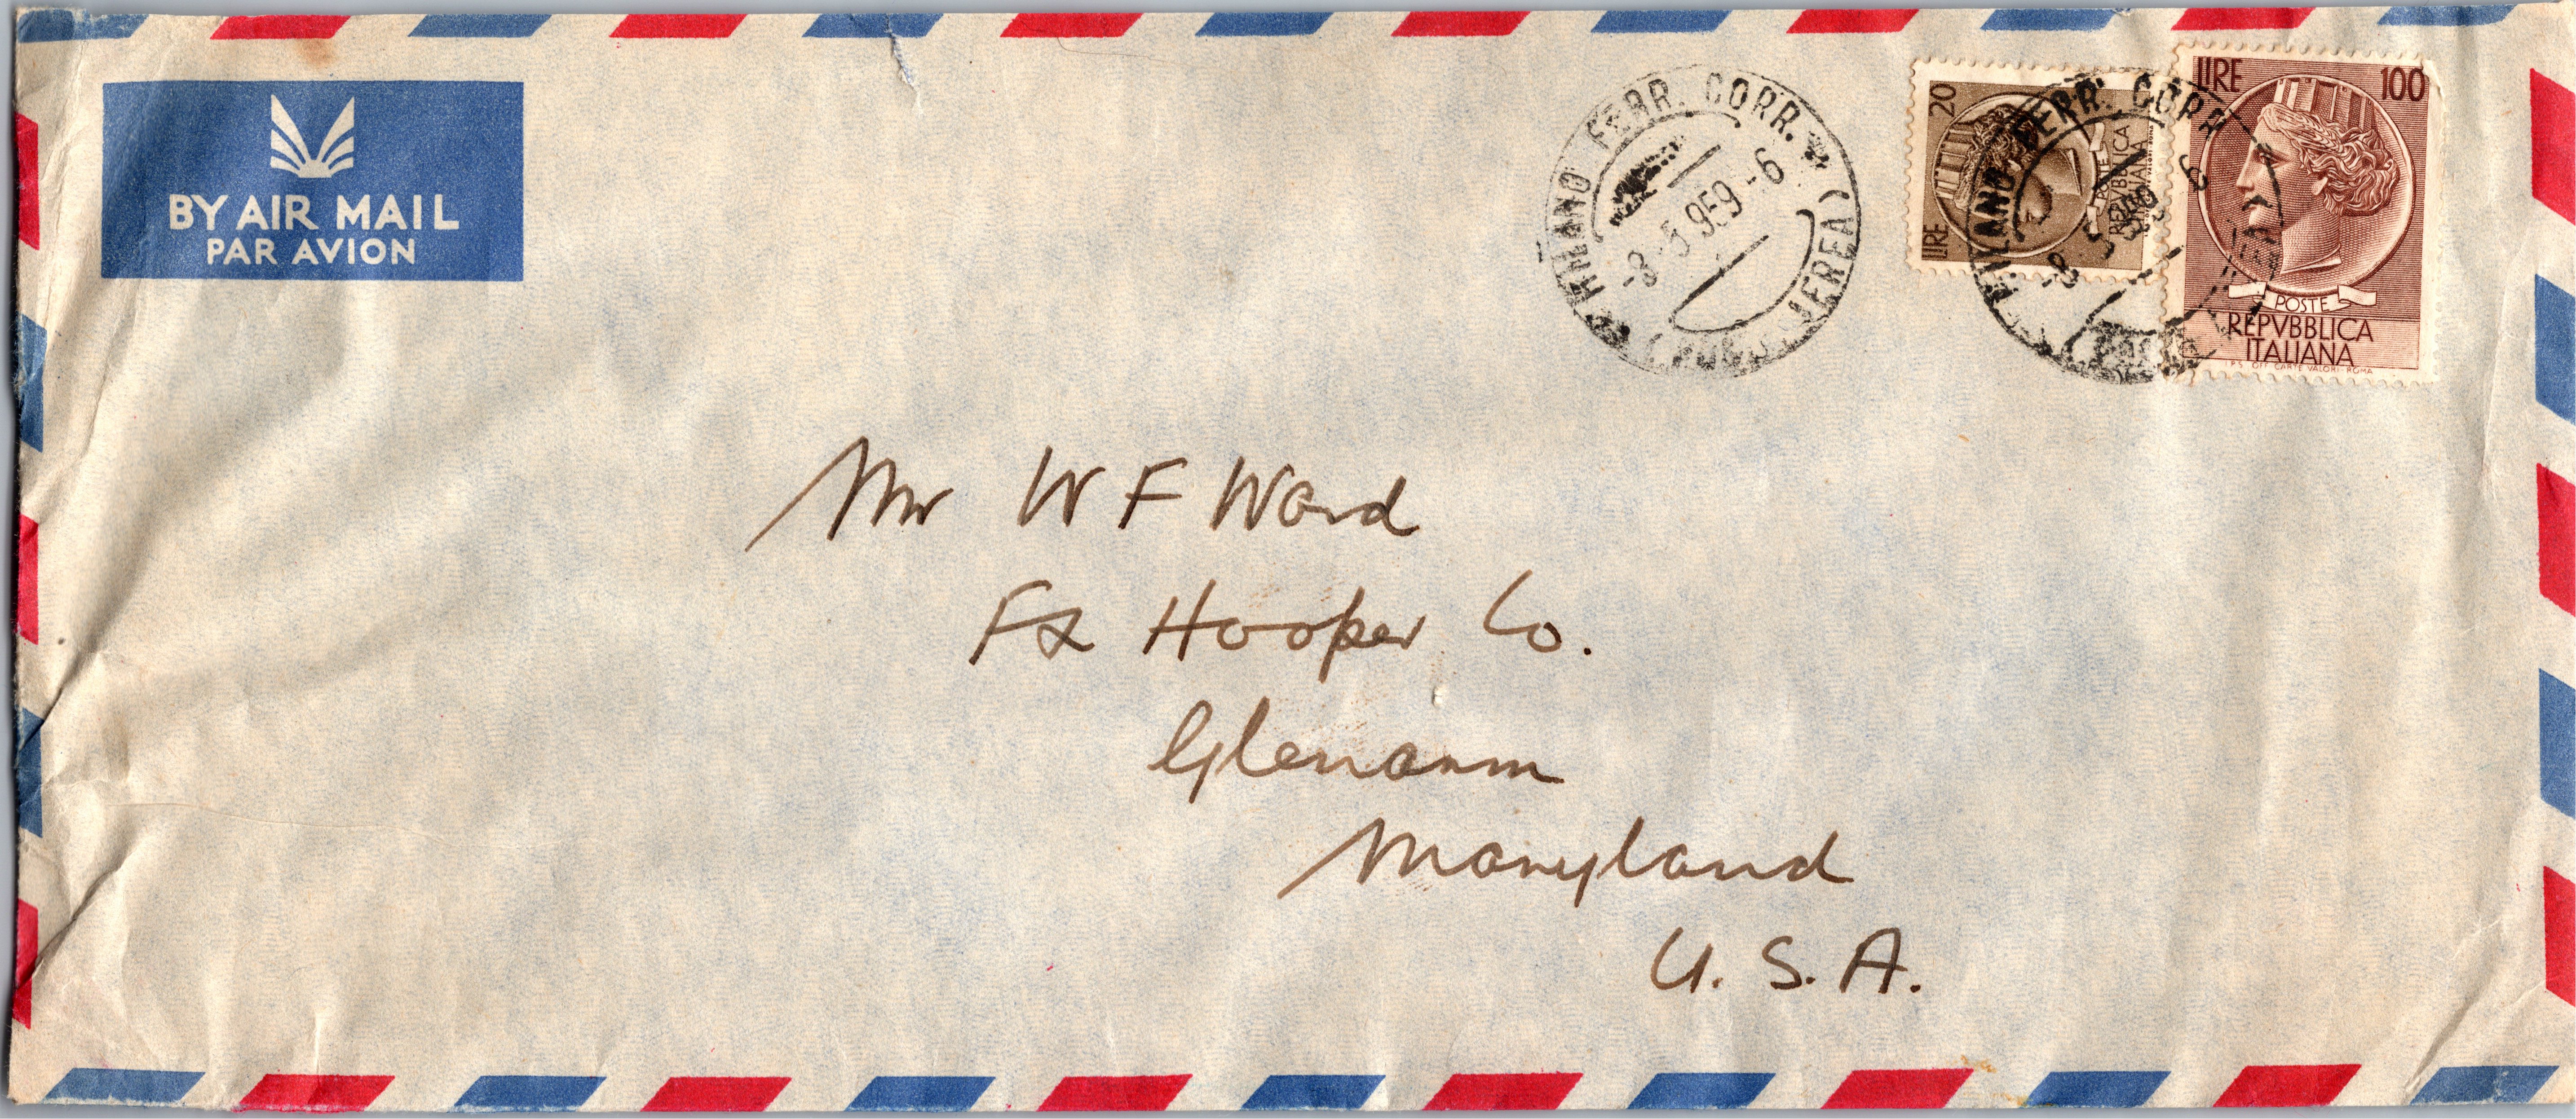 BY AIR MAIL
PAR AVION
MILANO FERR. CORR.
AEREA)
-8-5 959-6
LIRE 20
POSTE
REPVBBLICA
ITALIANA
MILANO FERR. CORR.
-8-5
LIRE 100
POSTE
REPVBBLICA
ITALIANA
I.P.S. OFF. CARTE VALORI-ROMA
Mr W F Ward
FX Hooper Co.
Glenarm
Maryland
U. S. A.